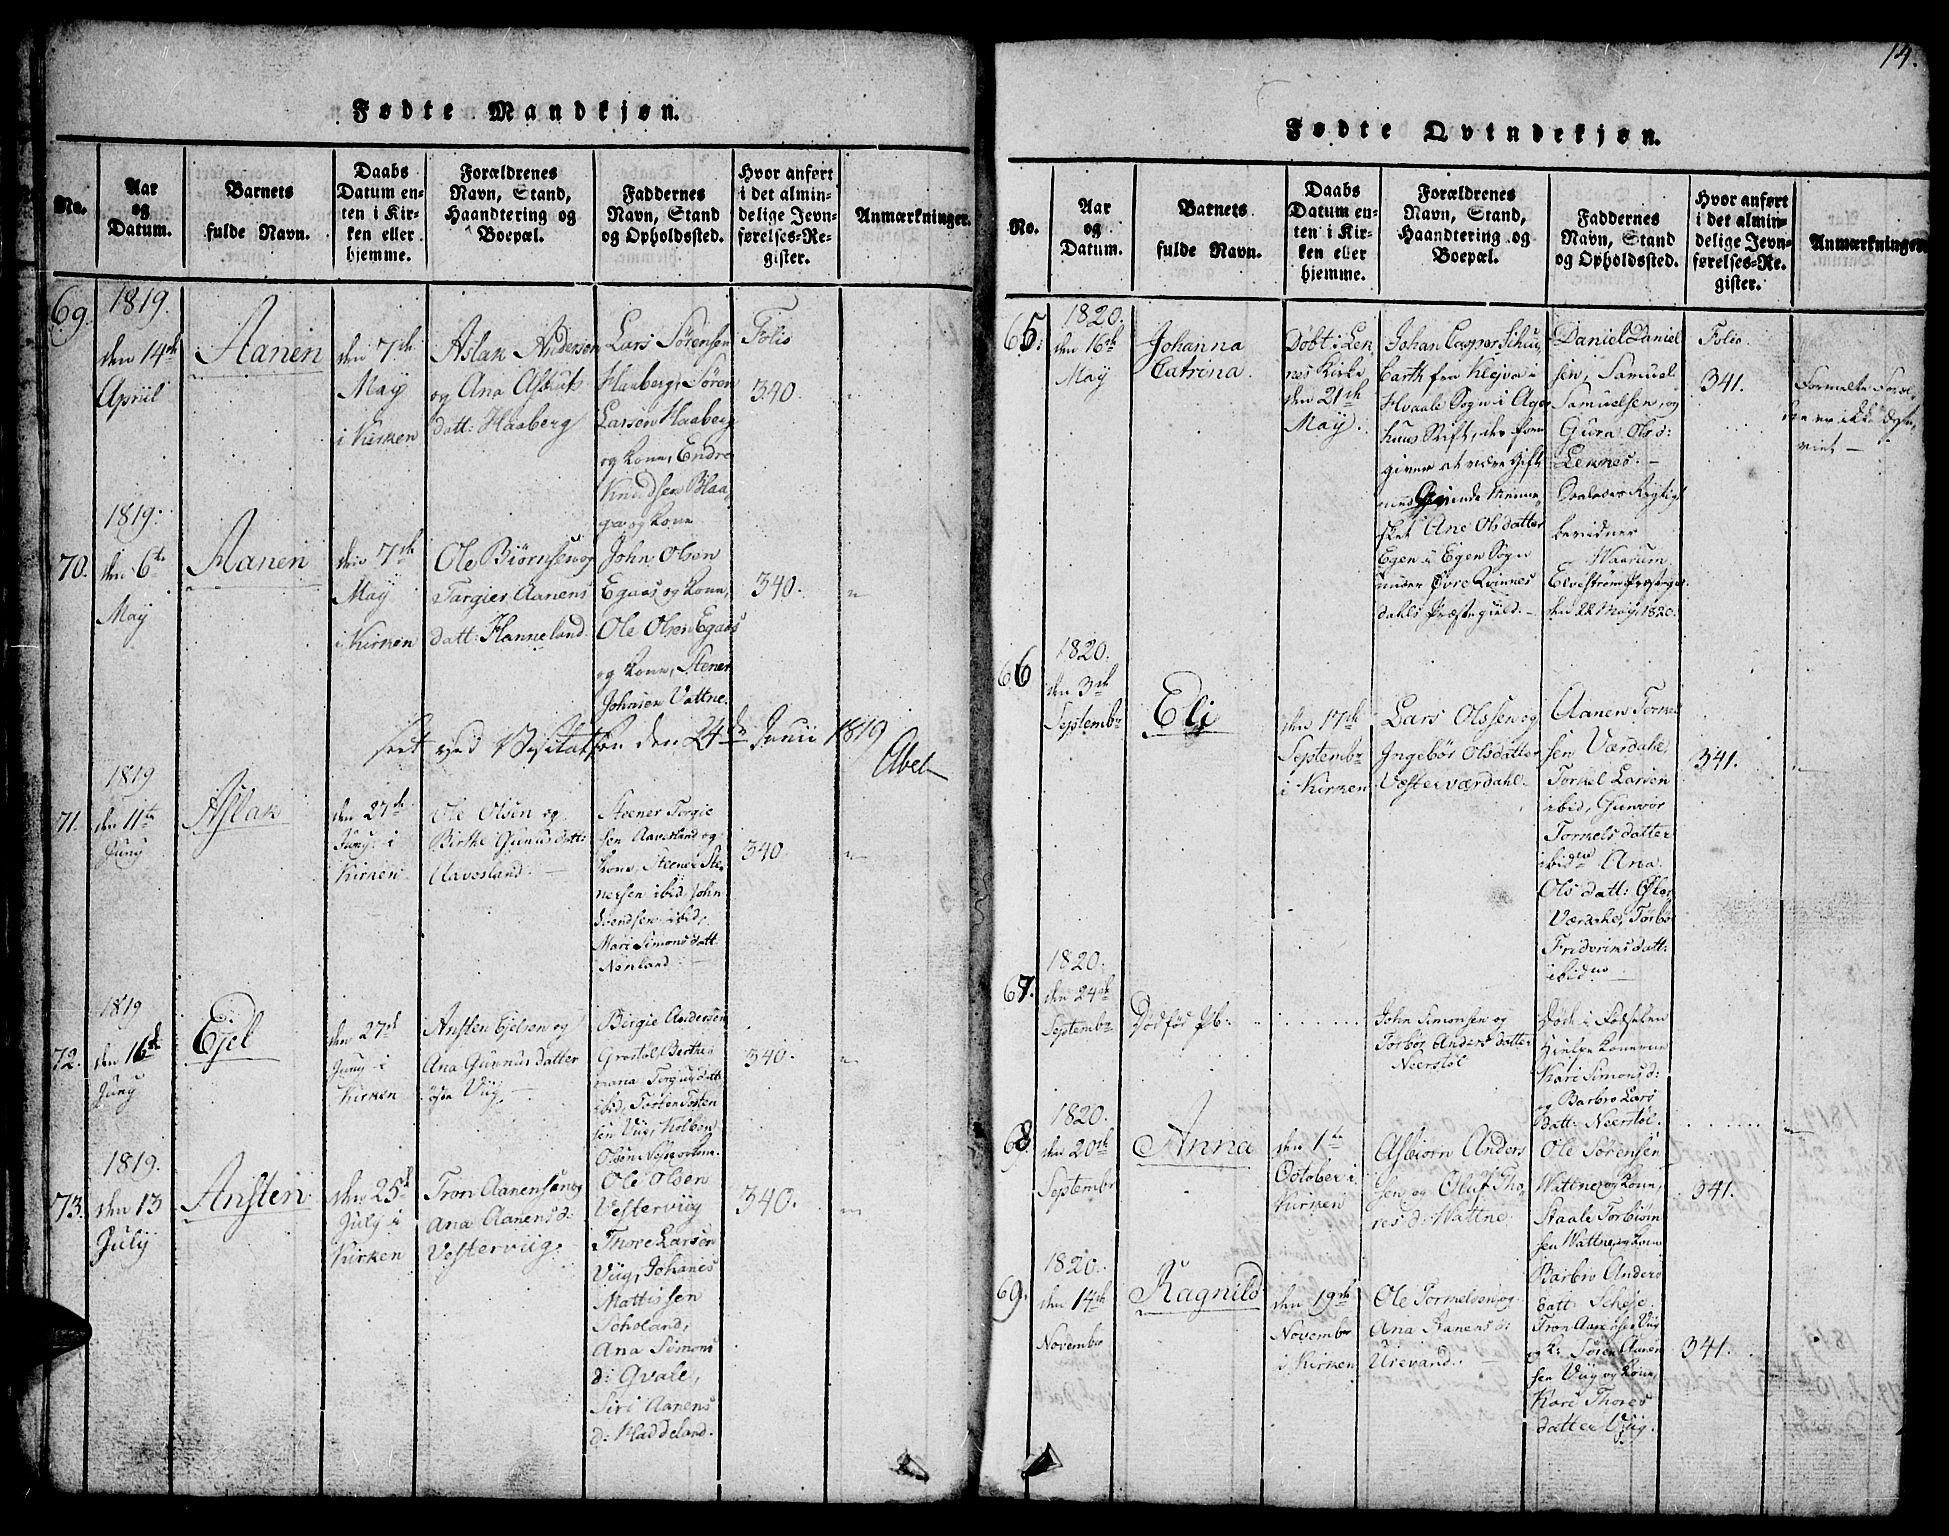 Fødte Mandkjøn.
No.
Aar
og
Datum.
Barnets
fulde Navn.
Daabs
Datum en-
ten i Kir-
ken eller
hjemme.
Forældrenes
Navn, Stand,
Haandtering og
Boepæl.
Faddernes
Navn, Stand
og Opholdssted.
Hvor anført
i det almin-
delige Jevn-
førelses-Re-
gister.
Anmærkninger.
69.
1819.
den 14de
Apriil
Aanen
den 7de
May
i Kirken
Aslak Andersen
og Ana Aslaks
datt: Haaberg
Lars Sörensen
Haaberg, Sören
Larsen Haaberg
og kone, Endre
Knudsen Blaa-
og kone
Folio
340.
1819.
70.
den 6te
May
Aanen
den 7de
May
i Kirken
Ole Biörnsen og
Targier Aanens
datt: Hanneland.
John Olsen
Egaas og kone,
Ole Olsen Egaas
og kone, Stener
Johnsen Vattne.
340.
seet ved Visitatsen den 24de Junii 1819
Abel
1819
71.
den 11te
Juny
Aslak
den 27de
Juny i
Kirken
Ole Olsen og
Birthe Gunusdatt:
Uavesland.
Steener Torgie
sen Aaversland og
kone, Steener Ste-
nersen ibid, John
Svendsen ibid,
Mari Simonsdatt.
Nenland
340
1819
72.
den 16de
Juny
Ejel
den 27de
Juny i
Kirken
Ansten Ejelsen og
Ana Gunnusdatter
Viig
Birgie Andersen
Grostöl, Berthe
ibid, Torsten Tosten
sen Viig, Kolben
Olsen
340.
1819.
73.
den 13
July
Ansten
den 25de
July i
Kirken
Tron Aanensen og
Ana Aanensd:
Vesterviig.
Ole Olsen
Vesterviig
Thore Larsen
Viig, Johanes
Mattissen
Scholand,
Ana Simons
d: Qvale,
Siri Aanens
d: Haddeland.
340.
14.
Fødte Qvindekjøn.
No.
Aar
og
Datum.
Barnets
fulde Navn.
Daabs
Datum en-
ten i Kir-
ken eller
hjemme.
Forældrenes
Navn, Stand,
Haandtering og
Boepæl.
Faddernes
Navn, Stand
og Opholdssted.
Hvor anført
i det almin-
delige Jevn-
førelses-Re-
gister.
Anmærkninger
65.
1820.
den 16de
May
Johanna
Catrina.
Döbt i Len
nes Kirke
den 21de
May.
Johan Casper Schu-
barth fra Klejva i
Hvaale Sogn i Ager
huus Stift, der fore
giver at være Gift
med Qvinde Menne-
sket Ane Olsdatter
Egen i Egen Sogn
under Övre Qvinnes
dahls Præstegield.
Daniel Daniel
sen, Samuel
Samuelsen, og
Gura Olsd:
Lennes.
Saaledes Rigtigt
bevidner
Waarum,
den 22 May 1820.
Folio
341.
Formelte Foræl-
dre er ikke
viet
66
1820.
den 3de
Septembr
Eli
den 17de
Septembr
i Kirken
Lars Olssen og
Ingebör Olsdatter
Vesterværdahl.
Aanen Torkel
sen Værdahl,
Torkel Larsen
ibid, Gunvor
Torkelsdatter
ibid, Ana
Olsdatt: Öster
Værdahl, Torbör
Frideriksdatt:
ibidm
341.
67.
1820.
den 24de
Septembr
Dödföd Pb.
John Simonsen og
Torbör Andersdatter
Neerstöl
Döde i Födselen
Hjelpe konerne
Kari Simonsd:
og Barbro Lars
datt: Neerstöl.
68.
1820.
den 20de
Septembr
Anna
den 1te
October i
Kirken
Asbiorn Anders
sen og Oluf Tho-
resd: Wattne.
Ole Sörensen
Wattne og kone,
Staale Torbiörn
sen Wattne og kone
Barbro Anders
datt: Scheje.
341.
69.
1820.
den 14de
Novembr
Ragnild
den 19de
Novembr
i Kirken
Ole Tormelsen og
Ana Aanensd:
Urevand.
Tron Aanensen Viig
og k: Sören Aanen
sen Viig og kone,
Kari Thores
datter Viig.
341.